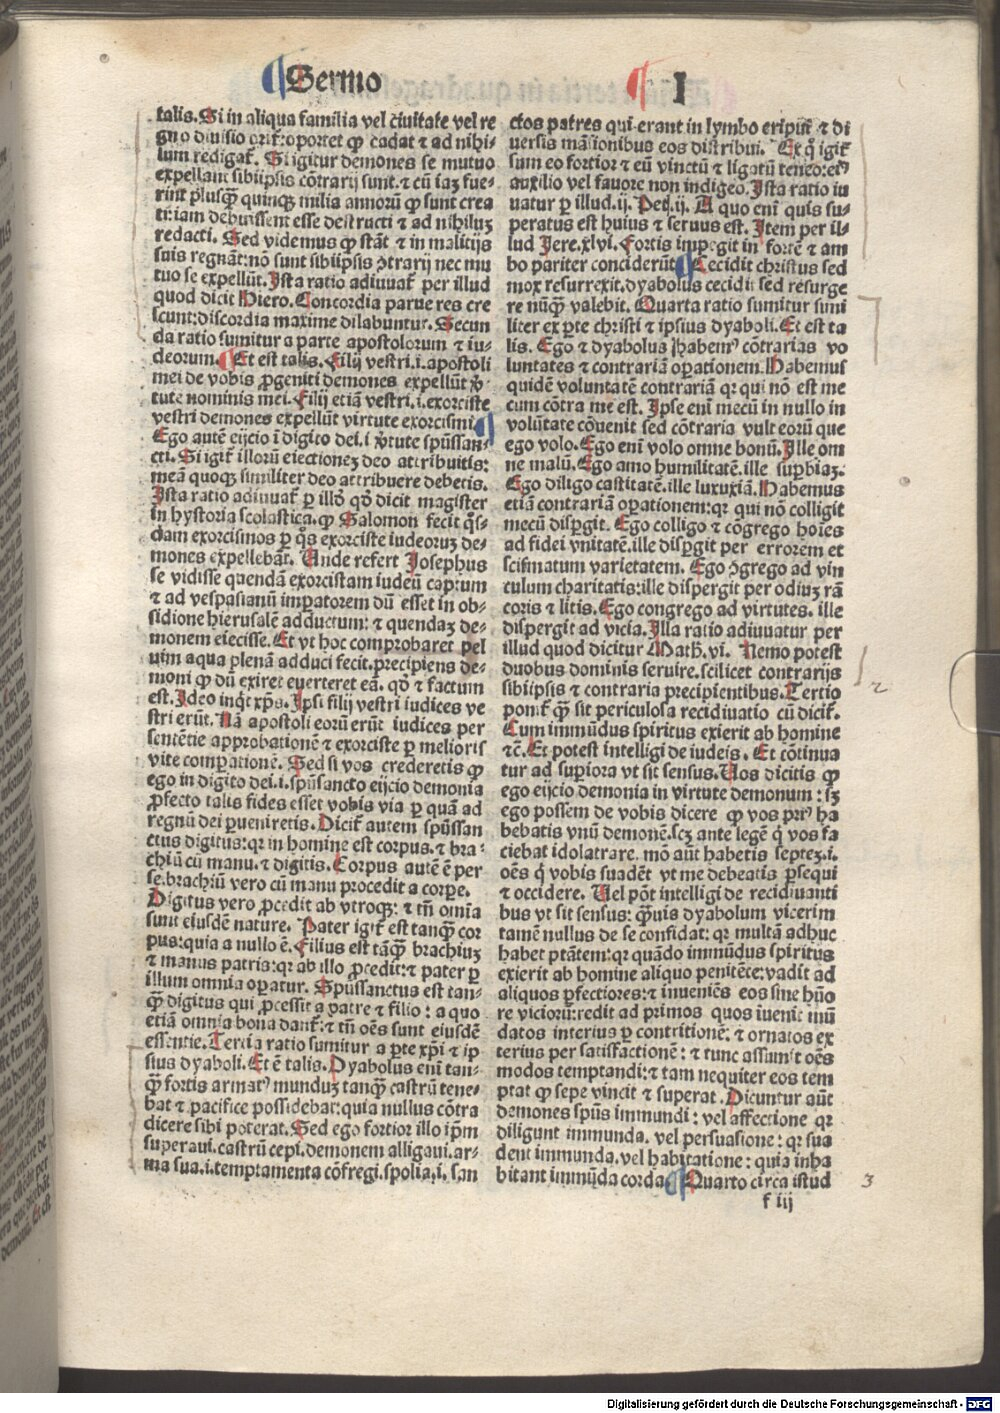 Sermo I
talis. Si in aliqua familia vel ciuitate vel re
gno diuisio orit̃: oportet ꝙ cadat ⁊ ad nihi-
lum redigat̃. Si igitur demones se mutuo
expellant sibiipsis cõtrarij sunt. ⁊ cũ iaꝫ fue-
rint plusꝙ̃ quinqꝫ milia annorũ ꝙ sunt crea
ti: iam debuissent esse destructi ⁊ ad nihiluꝫ
redacti. Sed videmus ꝙ stãt ⁊ in malitijs
suis regnãt: nõ sunt sibiipsis ꝯtrarij nec mu
tuo se expellũt. Ista ratio adiuuat̃ per illud
quod dicit Hiero. Concordia parue res cre
scunt: discordia maxime dilabuntur. Secun
da ratio sumitur a parte apostolorum ⁊ iu-
deorum. Et est talis. Filij vestri .i. apostoli
mei de vobis ꝓgeniti demones expellũt ṽ-
tute nominis mei. Filij etiã vestri .i. exorciste
vestri demones expellũt virtute exorcismi.
Ego autẽ eijcio ĩ digito dei .i. ṽtute spũssan-
cti. Si igit̃ illorũ eiectionẽ deo attribuitis:
meã quoqꝫ similiter deo attribuere debetis.
Ista ratio adiuuat̃ ꝑ illđ qđ dicit magister
in hystoria scolastica. ꝙ Salomon fecit q̃s-
dam exorcismos ꝑ q̃s exorciste iudeoruꝫ de-
mones expellebãt. Unde refert Josephus
se vidisse quendã exorcistam iudeũ captum
⁊ ad vespasianũ imꝑatorem dũ esset in ob-
sidione hierusalẽ adductum: ⁊ quendaꝫ de-
monem eiecisse. Et vt hoc comprobaret pel
uim aqua plenã adduci fecit. precipiens de-
moni ꝙ dũ exiret euerteret eã. qđ ⁊ factum
est. Ideo inq̃t xp̃s. Ipsi filij vestri iudices ve
stri erũt. Nã apostoli eorũ erũt iudices per
sentẽtie approbationẽ ⁊ exorciste ꝑ melioris
vite comꝑationẽ. Sed si vos crederetis ꝙ
ego in digito dei .i. spũsancto eijcio demonia
ꝓfecto talis fides esset vobis via ꝑ quã ad
regnũ dei ꝑueniretis. Dicit̃ autem spũssan
ctus digitus: qr in homine est corpus. ⁊ bra-
chiũ cũ manu. ⁊ digitis. Corpus autẽ ẽ per
se. brachiũ vero cũ manu procedit a corꝑe.
Digitus vero ꝓcedit ab vtroqꝫ: ⁊ tñ omĩa
sunt eiusdẽ nature. Pater igit̃ est tanꝙ̃ cor
pus: quia a nullo ẽ. Filius est tãꝙ̃ brachiuꝫ
⁊ manus patris: qr ab illo ꝓcedit: ⁊ pater ꝑ
illum omnia oꝑatur. Spũssanctus est tan-
ꝙ̃ digitus qui ꝓcessit a patre ⁊ filio: a quo
etiã omnia bona dant̃: ⁊ tñ oẽs sunt eiusdẽ
essentie. Tertia ratio sumitur a ꝑte xp̃i ⁊ ip
sius dyaboli. Et ẽ talis. Dyabolus enĩ tan-
ꝙ̃ fortis armatꝰ munduꝫ tanꝙ̃ castrũ tene-
bat ⁊ pacifice possidebat: quia nullus cõtra
dicere sibi poterat. Sed ego fortior illo ip̃m
superaui. castrũ cepi. demonem alligaui. ar-
ma sua .i. temptamenta cõfregi. spolia .i. san
ctos patres qui erant in lymbo eripui ⁊ di
uersis mãsionibus eos distribui. Ex q̃ igit̃
sum eo fortior ⁊ eũ vinctũ ⁊ ligatũ teneo: eiꝰ
auxilio vel fauore non indigeo. Ista ratio iu
uatur ꝑ illud .ij. Pet. ij. A quo enĩ quis su-
peratus est huius ⁊ seruus est. Item per il-
lud Jere. xlvi. Fortis impegit in fortẽ ⁊ am
bo pariter conciderũt. Cecidit christus sed
mox resurrexit. dyabolus cecidit sed resurge
re nũꝙ̃ valebit. Quarta ratio sumitur simi
liter ex ꝑte christi ⁊ ipsius dyaboli. Et est ta
lis. Ego ⁊ dyabolus habemꝰ cõtrarias vo
luntates ⁊ contrariã oꝑationem. Habemus
quidẽ voluntatẽ contrariã qr qui nõ est me
cum cõtra me est. Ipse enĩ mecũ in nullo in
volũtate cõuenit sed cõtraria vult eorũ que
ego volo. Ego enĩ volo omne bonũ. Ille om
ne malũ. Ego amo humilitatẽ. ille suꝑbiaꝫ.
Ego diligo castitatẽ. ille luxuxiã. Habemus
etiã contrariã oꝑationem: qr qui nõ colligit
mecũ disꝑgit. Ego colligo ⁊ cõgrego hoĩes
ad fidei vnitatẽ. ille disꝑgit per errorem et
scismatum varietatem. Ego ꝯgrego ad vin
culum charitatis: ille dispergit per odiuꝫ rã
coris ⁊ litis. Ego congrego ad virtutes. ille
dispergit ad vicia. Illa ratio adiuuatur per
illud quod dicitur Math. vi. Nemo potest
duobus dominis seruire. scilicet contrarijs
sibiipsis ⁊ contraria precipientibus. Tertio
ponit̃ ꝙ̃ sit periculosa recidiuatio cũ dicit̃.
Cum immũdus spiritus exierit ab homine
⁊c̃. Et potest intelligi de iudeis. Et cõtinua
tur ad suꝑiora vt sit sensus. Uos dicitis ꝙ
ego eijcio demonia in virtute demonum: sꝫ
ego possem de vobis dicere ꝙ vos priꝰ ha
bebatis vnũ demonẽ. scꝫ ante legẽ q̃ vos fa
ciebat idolatrare. mõ aũt habetis septeꝫ .i.
oẽs q̃ vobis suadẽt vt me debeatis ꝑsequi
⁊ occidere. Uel põt intelligi de recidiuanti
bus vt sit sensus: ꝙ̃uis dyabolum vicerim
tamẽ nullus de se confidat: qr multã adhuc
habet ptãtem: qr quãdo immũdus spiritus
exierit ab homine aliquo penitẽte: vadit ad
aliquos ꝑfectiores: ⁊ inueniẽs eos sine hũo
re viciorũ: redit ad primos quos iuenit mũ
datos interius ꝑ contritionẽ: ⁊ ornatos ex
terius per satisfactionẽ: ⁊ tunc assumit oẽs
modos temptandi: ⁊ tam nequiter eos tem
ptat ꝙ sepe vincit ⁊ superat. Dicuntur aũt
demones spũs immundi: vel affectione qr
diligunt immunda. vel persuasione: qr sua
dent immunda. vel habitatione: quia inha
bitant immũda corda. Quarto circa istud
f iij
2
3
Digitalisierung gefördert durch die Deutsche Forschungsgemeinschaft - DFG